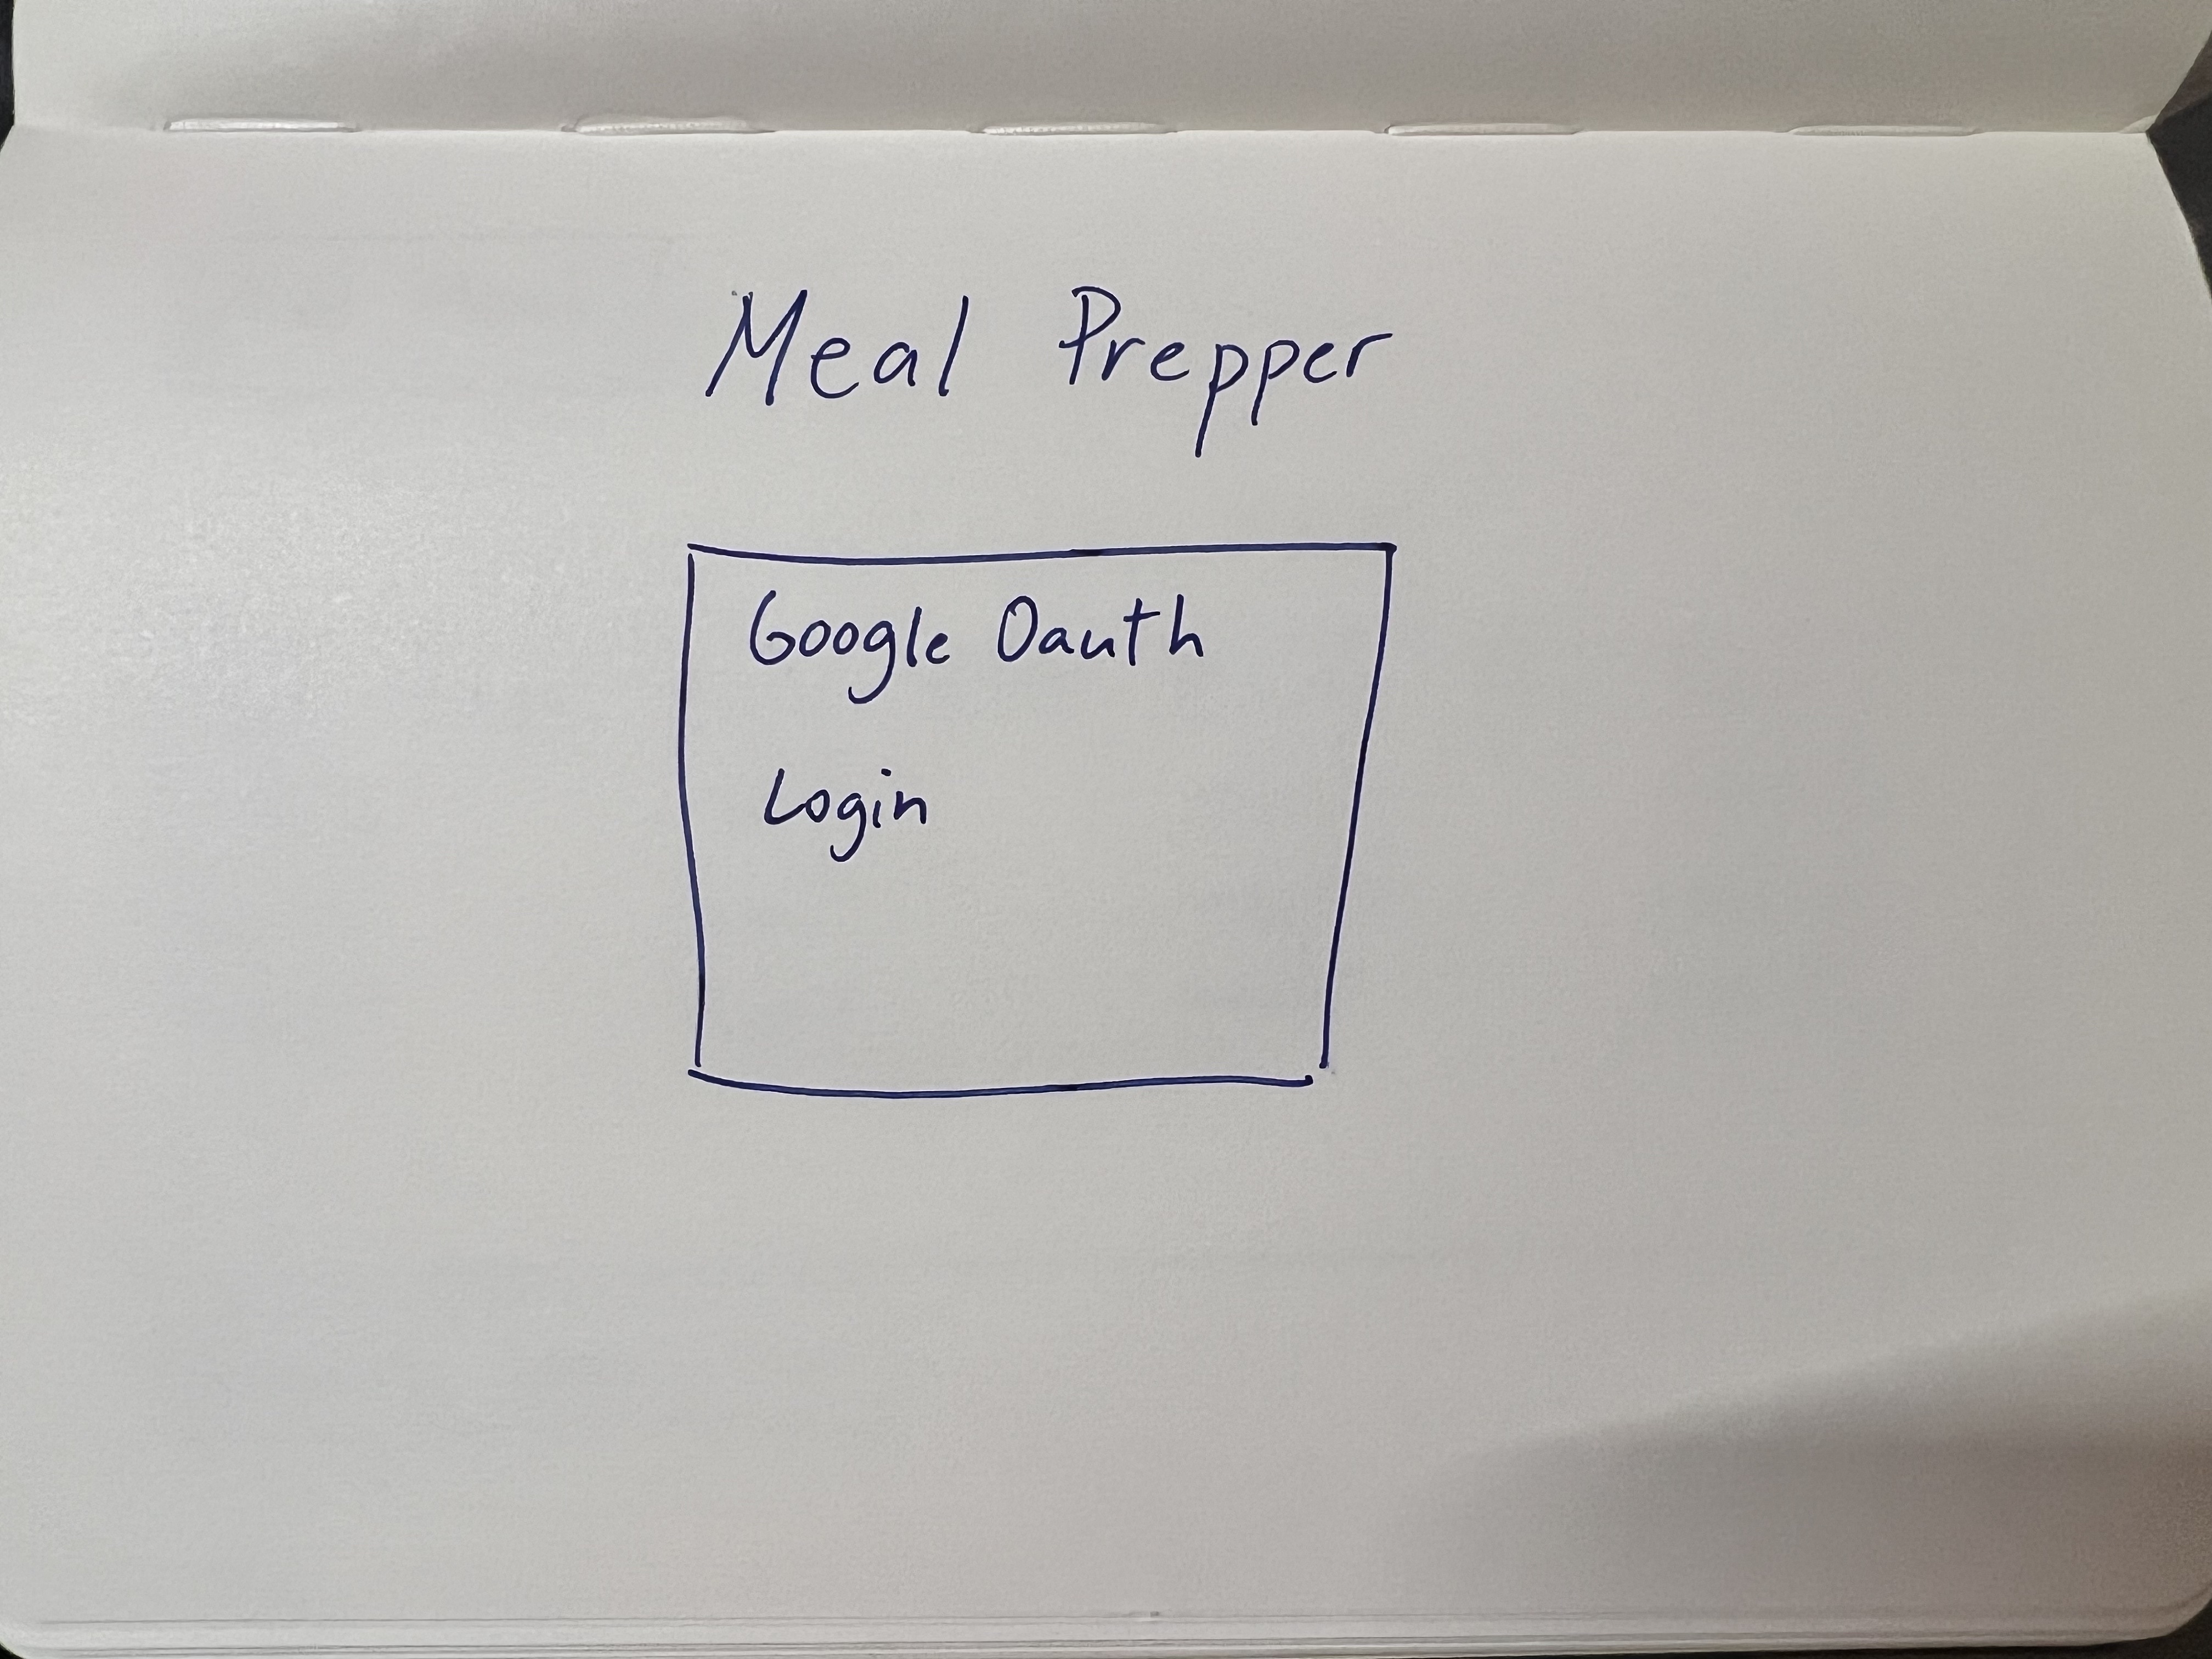 Meal Prepper
Google Oauth
Login